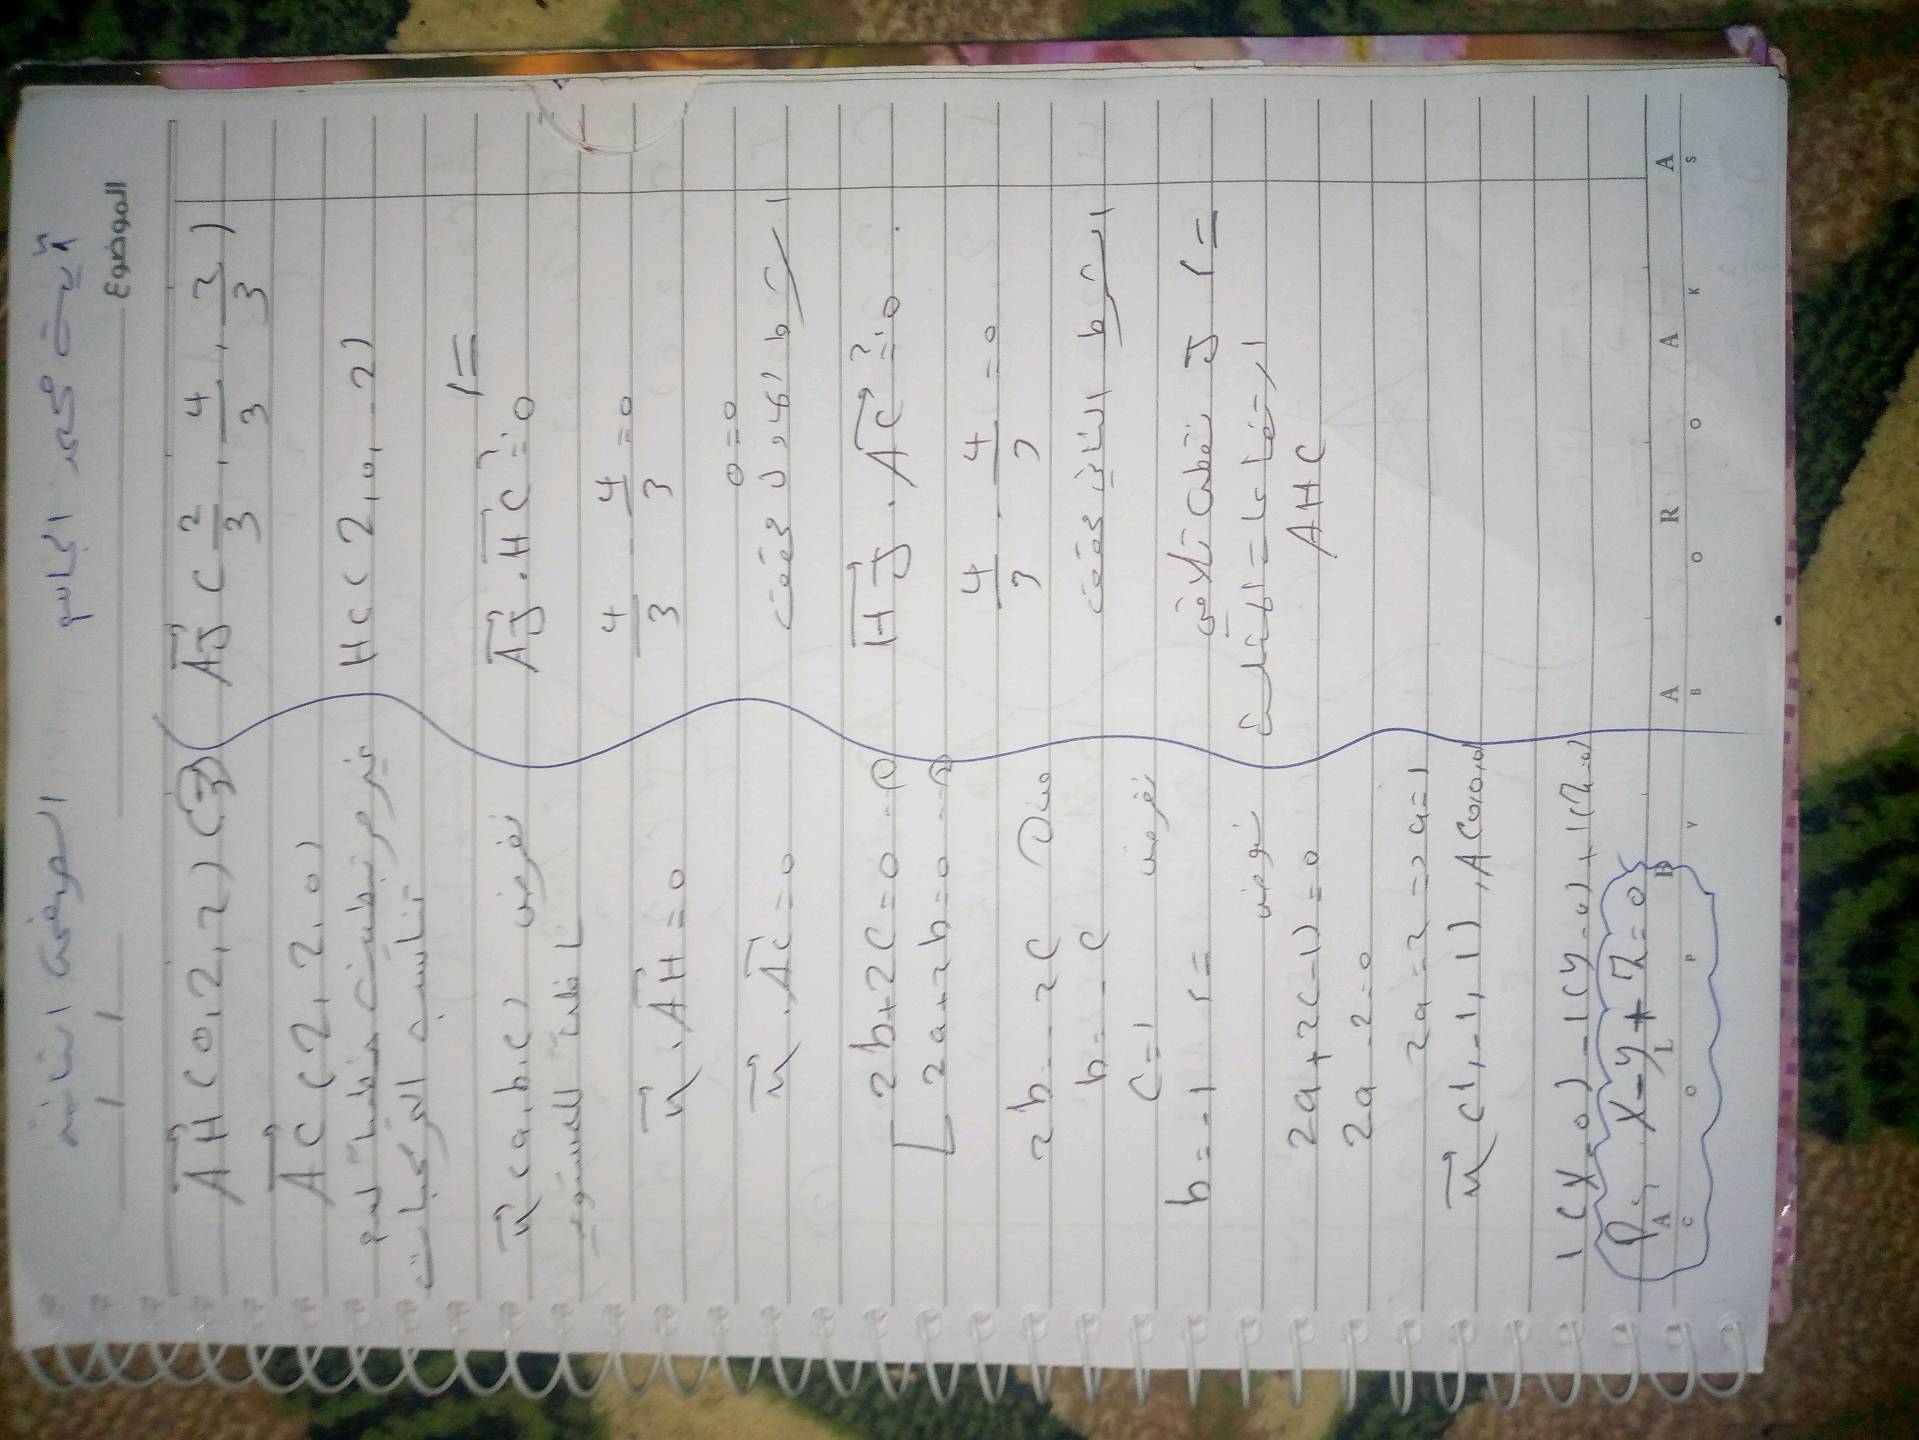 الصفحة الثانية
آيت محمد الجاسم
الموضوع
/ /
AH (0, 2, 2) (3
AC (2, 2, 0)
غير مرتبطين خطياً لعدم
تناسب المركبات
n (a, b, c) نفرض
ناظم المستوي
n . AH = 0
n . AC = 0
2b + 2c = 0 - ①
2a + 2b = 0 - ②
2b = -2c ① من
b = -c
c = 1 نفرض
b = -1 ⇐
نعوض
2a + 2(-1) = 0
2a - 2 = 0
2a = 2 => a = 1
n (1, -1, 1), A(0,0,0)
1(x-0) - 1(y-0) + 1(z-0)
P: x - y + z = 0
AJ ( 2/3 , 4/3 , 2/3 )
HC (2, 0, -2)
⇐
AJ . HC =? 0
4/3 - 4/3 = 0
0 = 0
الشرط الأول محقق
HJ . AC =? 0
4/3 - 4/3 = 0
الشرط الثاني محقق
⇐ J نقطة تلاقي
ارتفاعات المثلث
AHC
A L D A R O A A
C O P Y B O O K S